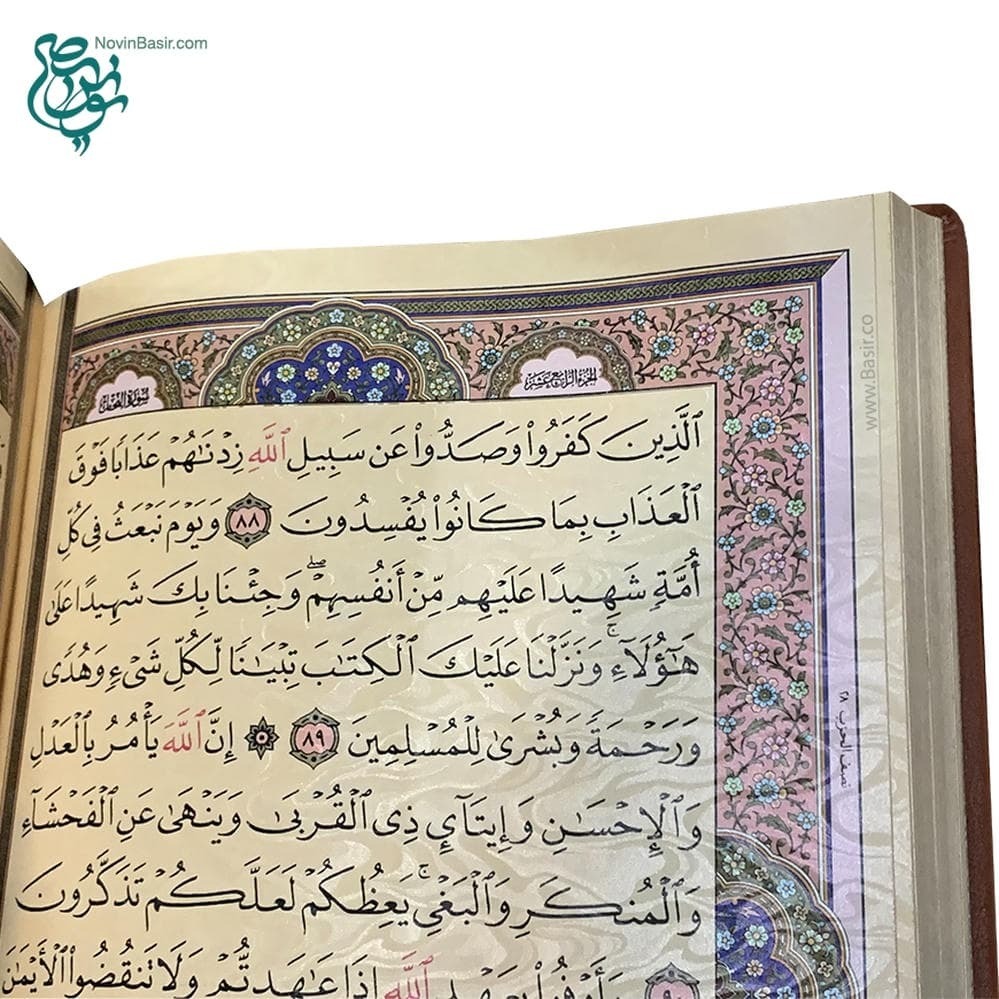 NovinBasir.com
الجزء الرابع عشر
سورة النحل
ٱلَّذِينَ كَفَرُوا۟ وَصَدُّوا۟ عَن سَبِيلِ ٱللَّهِ زِدْنَٰهُمْ عَذَابًا فَوْقَ
ٱلْعَذَابِ بِمَا كَانُوا۟ يُفْسِدُونَ ٨٨ وَيَوْمَ نَبْعَثُ فِى كُلِّ
أُمَّةٍ شَهِيدًا عَلَيْهِم مِّنْ أَنفُسِهِمْ ۖ وَجِئْنَا بِكَ شَهِيدًا عَلَىٰ
هَٰٓؤُلَآءِ ۚ وَنَزَّلْنَا عَلَيْكَ ٱلْكِتَٰبَ تِبْيَٰنًا لِّكُلِّ شَىْءٍ وَهُدًى
وَرَحْمَةً وَبُشْرَىٰ لِلْمُسْلِمِينَ ٨٩ ۞ إِنَّ ٱللَّهَ يَأْمُرُ بِٱلْعَدْلِ
وَٱلْإِحْسَٰنِ وَإِيتَآئِ ذِى ٱلْقُرْبَىٰ وَيَنْهَىٰ عَنِ ٱلْفَحْشَآءِ
وَٱلْمُنكَرِ وَٱلْبَغْىِ ۚ يَعِظُكُمْ لَعَلَّكُمْ تَذَكَّرُونَ
٩٠ وَأَوْفُوا۟ بِعَهْدِ ٱللَّهِ إِذَا عَٰهَدتُّمْ وَلَا تَنقُضُوا۟ ٱلْأَيْمَٰنَ
نصف الحزب ٢٨
www.Basir.co